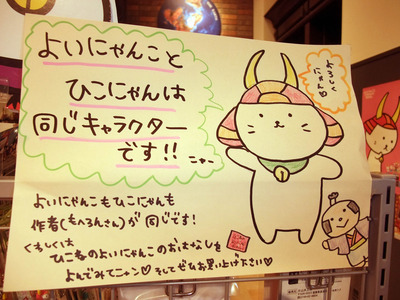 よいにゃんこと
ひこにゃんは
同じキャラクター
です!!
ニャー
よいにゃんこもひこにゃんも
作者(もへろんさん)が同じです!
くわしくは
ひこねのよいにゃんこのおはなしを
よんでみてニャン♡そしてぜひお買い上げ下さい♡